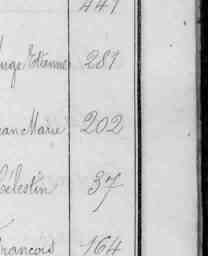 441
ange Etienne 281
ean Marie 202
élestin 37
rançois 164